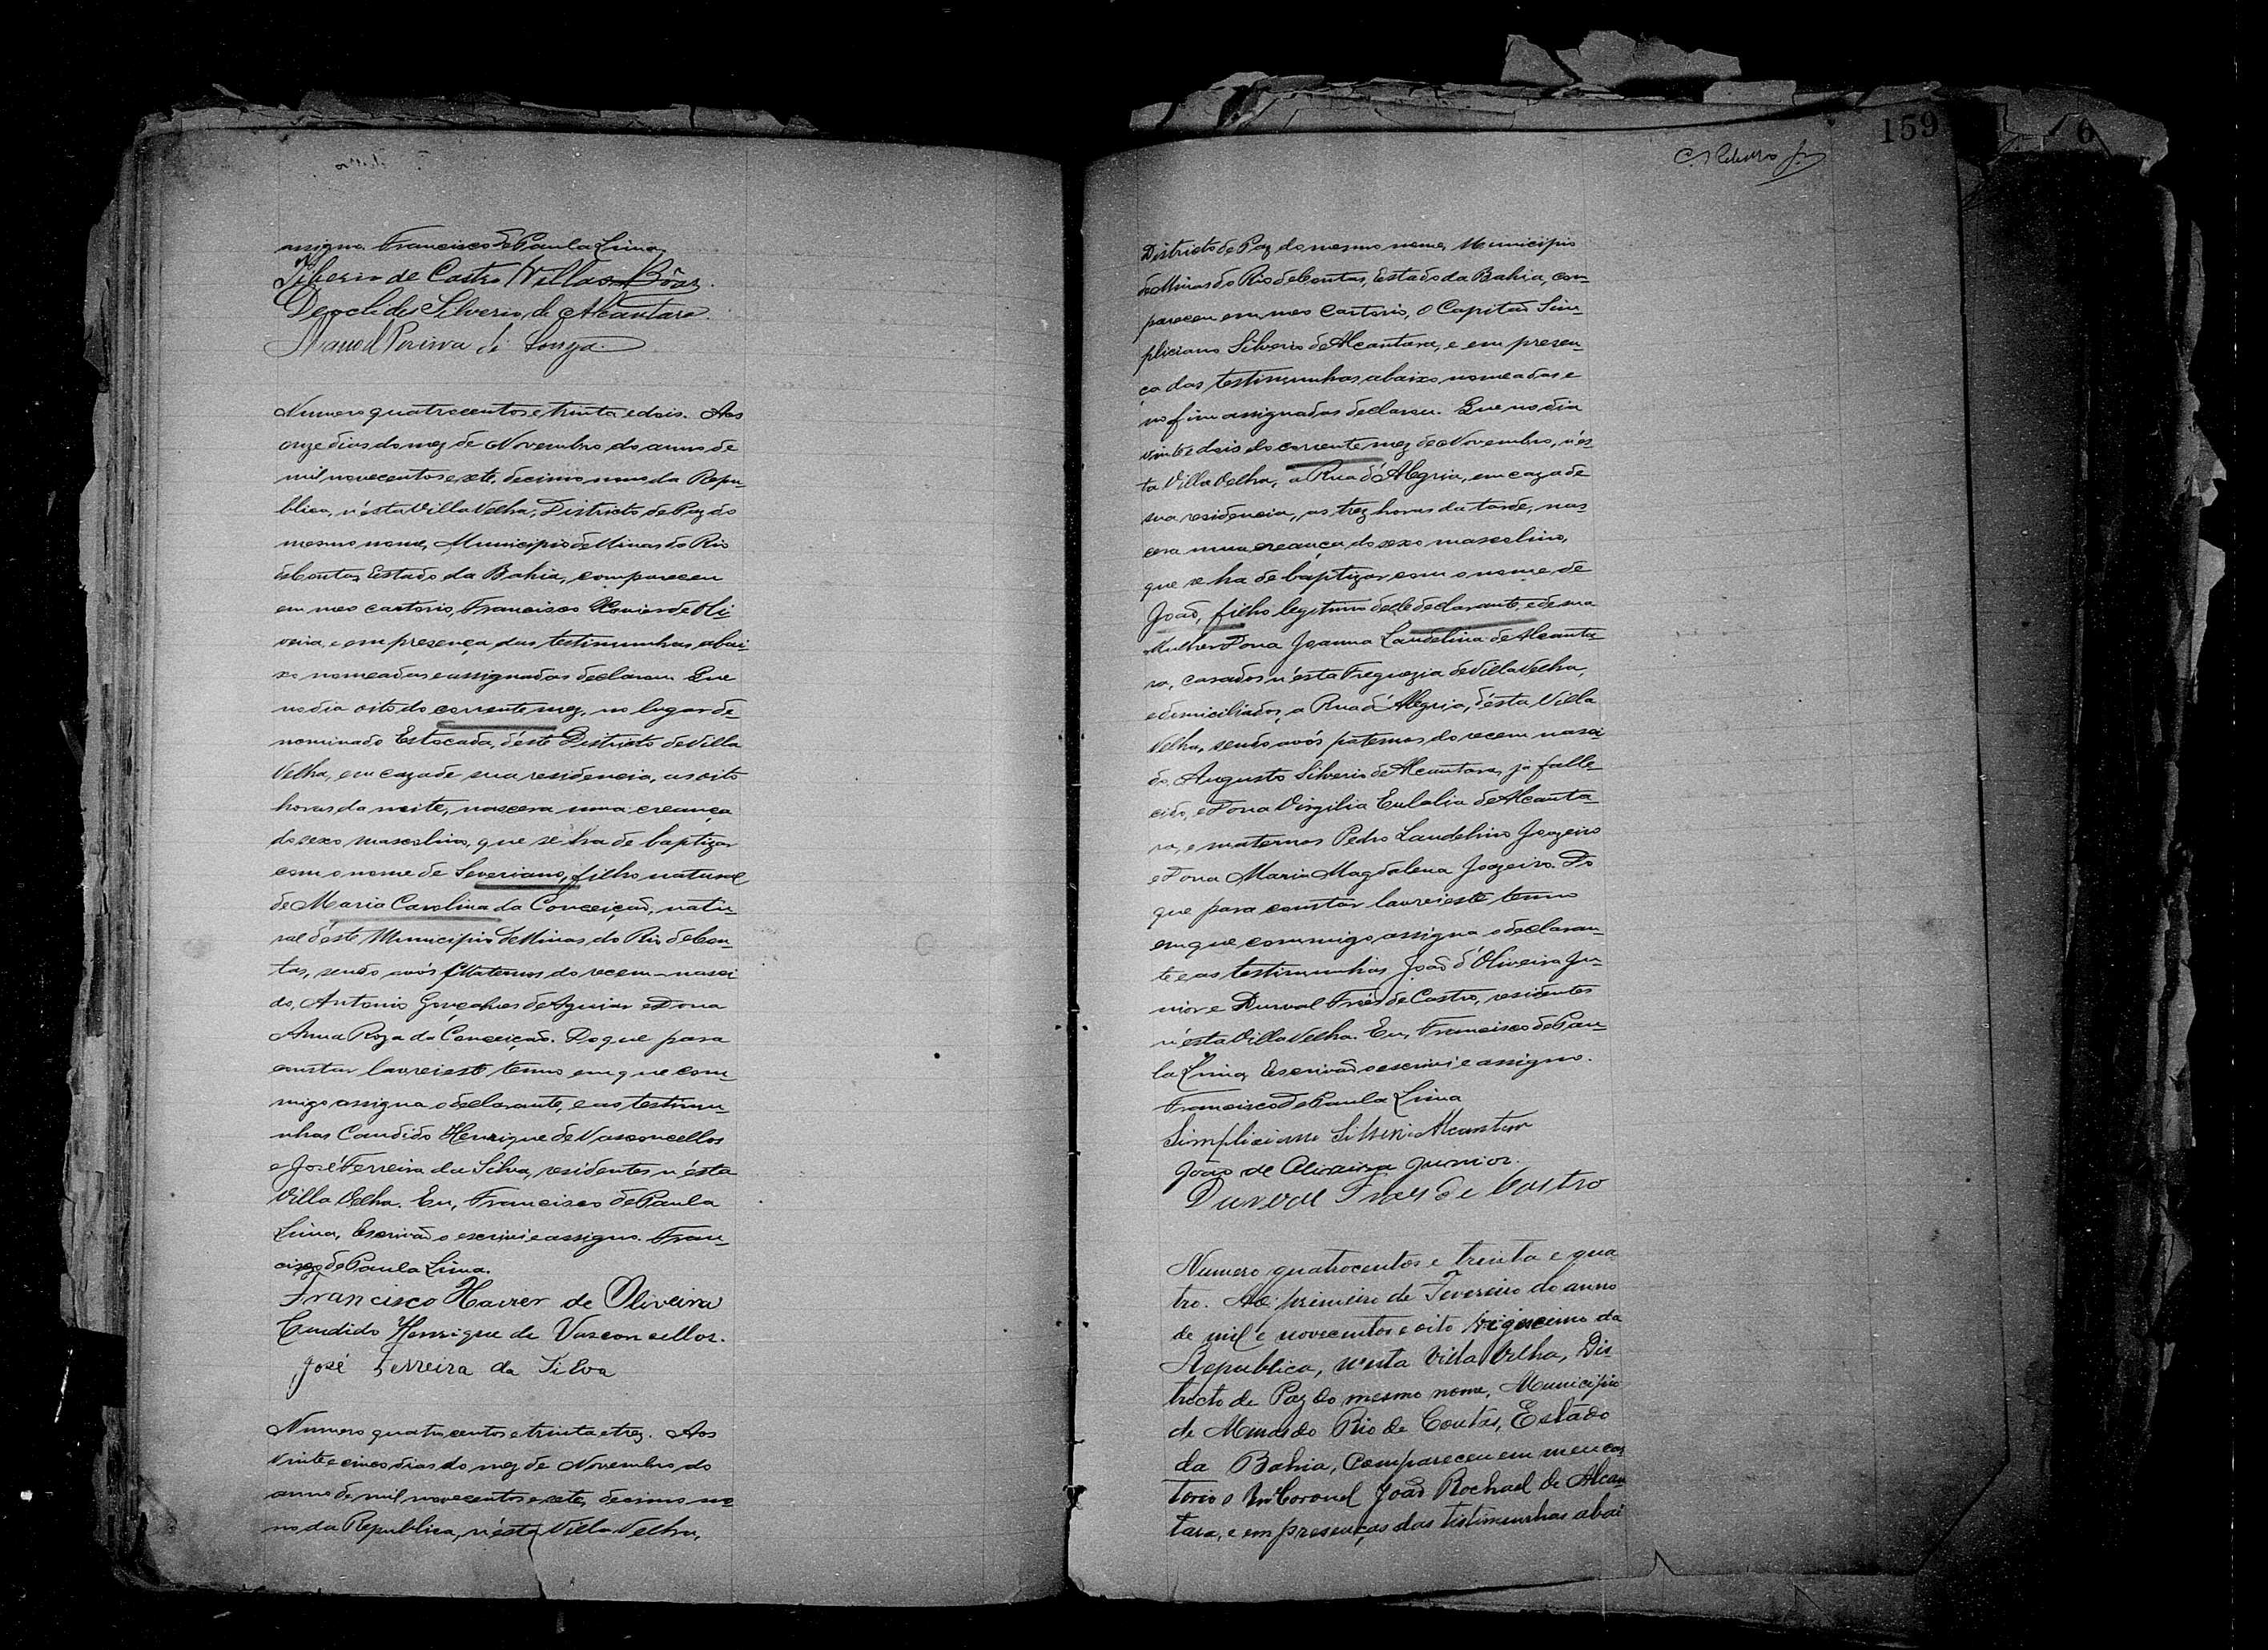 assigno. Francisco de Paula Lima
Tiberio de Castro Villas Bôas.
Deoclides Silverio de Alcantara.
Manoel Pereira de Souza.
Numero quatrocentos e trinta e dois. Aos
onze dias do mez de Novembro do anno de
mil novecentos e sete, decimo nono da Repu-
blica, n'ésta Villa Velha, Districto de Paz do
mesmo nome, Municipio de Minas do Rio
de Contas, Estado da Bahia, compareceu
em meo cartorio, Francisco Xavier de Oli-
veira, e em presença das testimunhas abai-
xo nomeadas e assignadas declarou. Que
no dia oito do corrente mez, no lugar de-
nominado Estocada, d'éste Districto de Villa
Velha, em caza de sua residencia, as oito
horas da noite, nascera uma creança
do sexo masculino, que se ha de baptizar
com o nome de Severiano, filho natural
de Maria Carolina da Conceição, natu-
ral d'éste Municipio de Minas do Rio de Con-
tas, sendo avós Maternos do recem-nasci
do, Antonio Gonçalves de Aguiar e Dona
Anna Roza da Conceição. Do que para
constar lavrei este termo em que com-
migo assigna o declarante, e as testimu-
nhas Candido Henrique de Vasconcellos
e José Ferreira da Silva, residentes n'ésta
Villa Velha. Eu, Francisco de Paula
Lima, Escrivão o escrivi e assigno. Fran-
cisco de Paula Lima.
Francisco Xavier de Oliveira
Candido Henrique de Vasconcellos.
José Ferreira da Silva
Numero quatrocentos e trinta e trez. Aos
vinte e cinco dias do mez de Novembro do
anno de mil novecentos e sete, decimo no
no da Republica, n'ésta Villa Velha,
159
6
C. Ribeiro Jr
Districto de Paz do mesmo nome, Municipio
de Minas do Rio de Contas, Estado da Bahia, com-
pareceu em meo Cartorio, o Capitão Sim-
pliciano Silverio de Alcantara, e em presen-
ça das testimunhas abaixo nomeadas e
no fim assignadas declarou. Que no dia
vinte e dois do corrente mez de Novembro, n'és-
ta Villa Velha, a Rua d'Alegria, em caza de
sua residencia, as trez horas da tarde, nas-
cera uma creança do sexo masculino,
que se ha de baptizar com o nome de
João, filho legitimo delle declarante, e de sua
Mulher Dona Joanna Laudelina de Alcanta-
ra, casados n'ésta Freguezia de Villa Velha,
e domiciliados, a Rua d'Alegria, d'ésta Villa
Velha, sendo avós paternos do recem nasci
do, Augusto Silverio de Alcantara, já falle-
cido, e Dona Virgilia Eulalia de Alcanta-
ra, e maternos Pedro Laudelino Joazeiro
e Dona Maria Magdalena Joazeiro. Do
que para constar lavrei este termo
em que commigo assigna o declaran-
te e as testimunhas João d'Oliveira Ju-
nior e Durval Fróes de Castro, residentes
n'ésta Villa Velha. Eu, Francisco de Pau-
la Lima, Escrivão o escrivi e assigno.
Francisco de Paula Lima
Simpliciano Silverio Alcantara
João de Oliveira Junior.
Durval Froes de Castro
Numero quatrocentos e trinta e qua
tro. Ao primeiro de Fevereiro do anno
de mil e novecentos e oito vigecimo da
Republica, nesta Villa Velha, Dis-
tricto de Paz do mesmo nome, Municipio
de Minas do Rio de Contas, Estado
da Bahia, Compareceu em meu car
torio o Coronel João Rochael de Alcan
tara, e em presenças das testimunhas abai